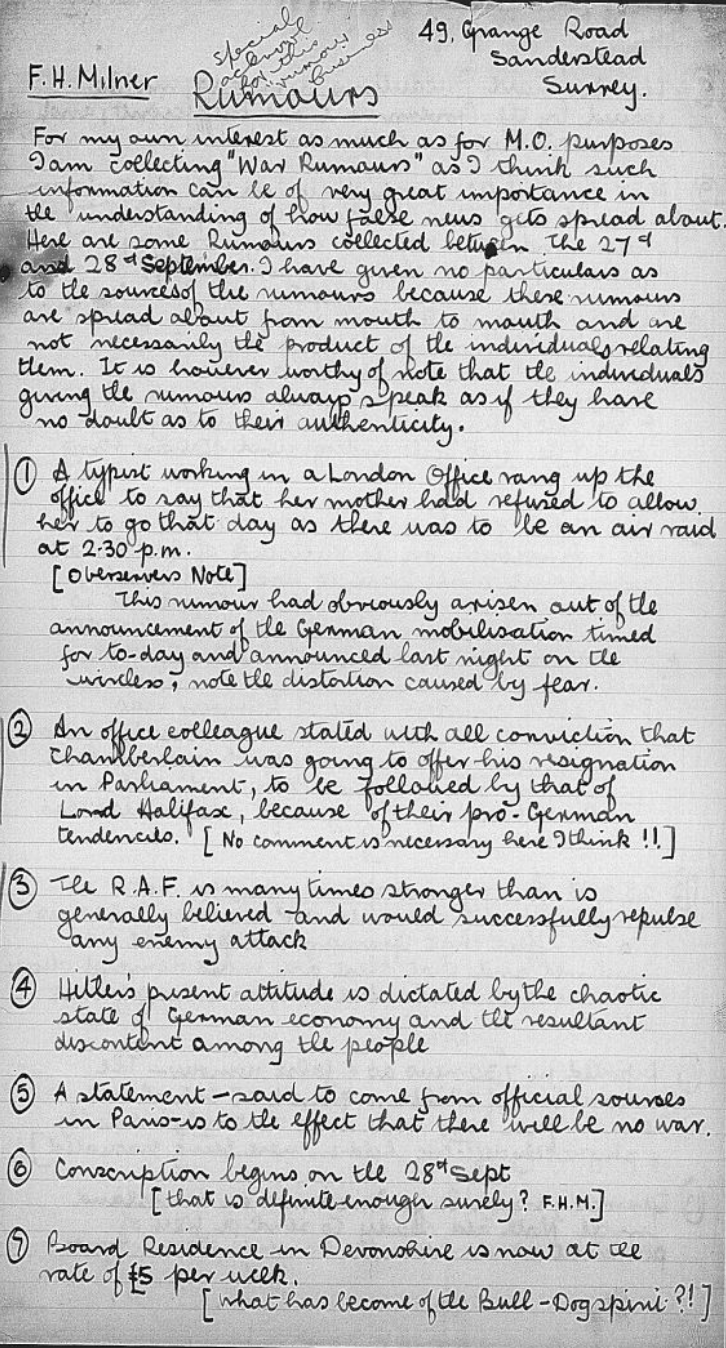 special
account
for this
rumour
business
49, Grange Road
Sanderstead
Surrey.
F.H. Milner
Rumours
For my own interest as much as for M.O. purposes
I am collecting "War Rumours" as I think such
information can be of very great importance in
the understanding of how false news gets spread about.
Here are some Rumours collected between the 27th
and 28th September. I have given no particulars as
to the sources of the rumours because these rumours
are spread about from mouth to mouth and are
not necessarily the product of the individuals relating
them. It is however worthy of note that the individuals
giving the rumours always speak as if they have
no doubt as to their authenticity.
① A typist working in a London Office rang up the
office to say that her mother had refused to allow
her to go that day as there was to be an air raid
at 2.30 p.m.
[Observers Note]
This rumour had obviously arisen out of the
announcement of the German mobilisation timed
for to-day and announced last night on the
wireless, note the distortion caused by fear.
② An office colleague stated with all conviction that
Chamberlain was going to offer his resignation
in Parliament, to be followed by that of
Lord Halifax, because of their pro-German
tendencies. [No comment is necessary here I think !!.]
③ The R.A.F. is many times stronger than is
generally believed and would successfully repulse
any enemy attack
④ Hitler's present attitude is dictated by the chaotic
state of German economy and the resultant
discontent among the people
⑤ A statement – said to come from official sources
in Paris – is to the effect that there will be no war.
⑥ Conscription begins on the 28th Sept
[that is definite enough surely? F.H.M.]
⑦ Board Residence in Devonshire is now at the
rate of £5 per week.
[what has become of the Bull-Dog spirit ?!]